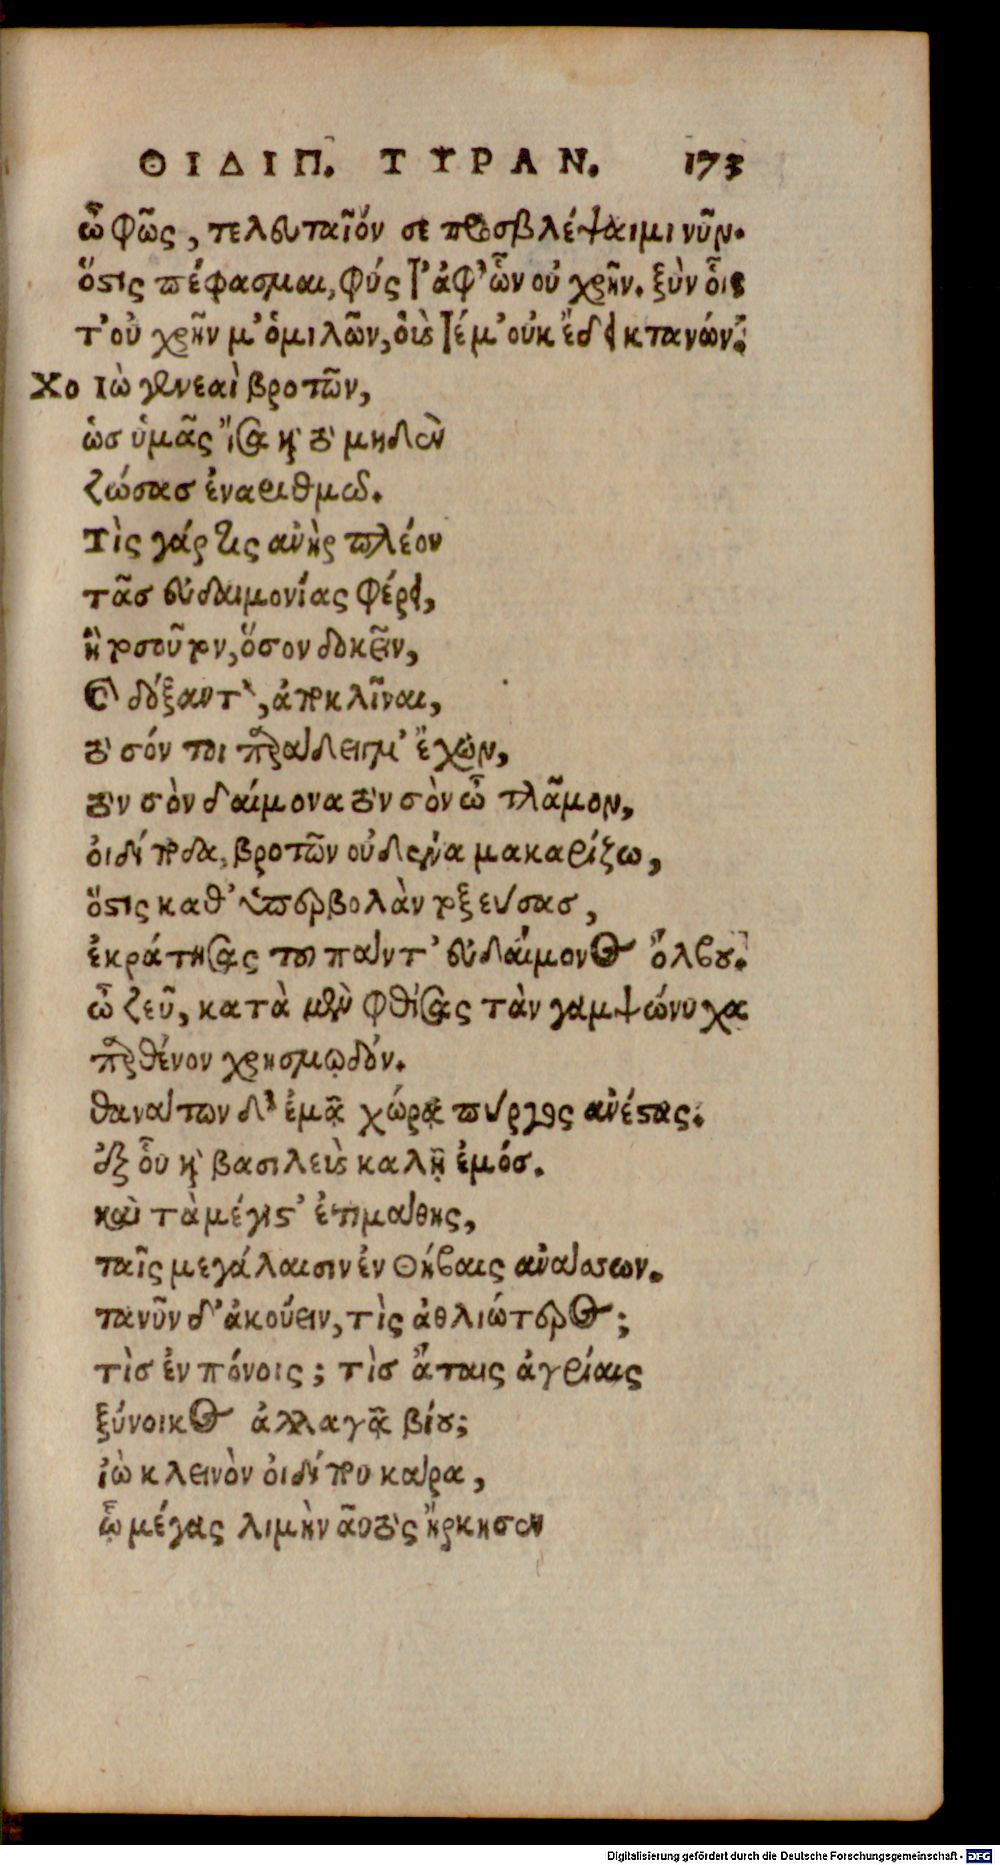 ΟΙΔΙΠ. ΤΥΡΑΝ. 173
ὦ φῶς, τελευταῖόν σε προσβλέψαιμι νῦν.
ὅστις πέφασμαι, φύς τ' ἀφ' ὧν οὐ χρῆν. ξὺν οἷς
τ' οὐ χρῆν μ' ὁμιλῶν, οὕς τέ μ' οὐκ ἔδει κτανών.
Χο Ἰὼ γενεαὶ βροτῶν,
ὡσ ὑμᾶς ἴσα καὶ τὸ μηδὲν
ζώσασ ἐναριθμῶ.
Τίς γάρ τις ἀνὴρ πλέον
τᾶσ εὐδαιμονίας φέρει,
ἢ τοσοῦτον, ὅσον δοκεῖν,
καὶ δόξαντ', ἀποκλῖναι,
τὸ σόν τοι παράδειγμ' ἔχων,
τὸν σὸν δαίμονα τὸν σὸν ὦ τλᾶμον,
οἰδίποδα, βροτῶν οὐδένα μακαρίζω,
ὅστις καθ' ὑπερβολὰν τοξεύσασ,
ἐκράτησας τοῦ πάντ' εὐδαίμονος ὄλβου.
ὦ ζεῦ, κατὰ μὲν φθίσας τὰν γαμψώνυχα
παρθένον χρησμῳδόν.
θανάτων δ' ἐμᾷ χώρᾳ πύργος ἀνέστας.
ἐξ οὗ καὶ βασιλεὺς καλῇ ἐμόσ.
καὶ τὰ μέγιστ' ἐτιμάθης,
ταῖς μεγάλαισιν ἐν Θήβαις ἀνάσσων.
τανῦν δ' ἀκούειν, τὶς ἀθλιώτερος;
τὶσ ἐν πόνοις; τὶσ ἄταις ἀγρίαις
ξύνοικος ἀλλαγᾷ βίου;
ἰὼ κλεινὸν οἰδίπου κάρα,
ᾧ μέγας λιμὴν αὐτὸς ἤρκησεν
Digitalisierung gefördert durch die Deutsche Forschungsgemeinschaft - DFG